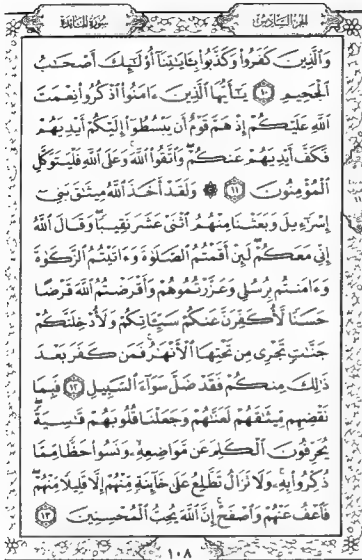 الجزء السادس سورة المائدة
وَالَّذِينَ كَفَرُوا وَكَذَّبُوا بِـَٔايَـٰتِنَآ أُو۟لَـٰٓئِكَ أَصْحَـٰبُ
ٱلْجَحِيمِ ١٠ يَـٰٓأَيُّهَا ٱلَّذِينَ ءَامَنُوا ٱذْكُرُوا نِعْمَتَ
ٱللَّهِ عَلَيْكُمْ إِذْ هَمَّ قَوْمٌ أَن يَبْسُطُوٓا إِلَيْكُمْ أَيْدِيَهُمْ
فَكَفَّ أَيْدِيَهُمْ عَنكُمْ ۖ وَٱتَّقُوا ٱللَّهَ ۚ وَعَلَى ٱللَّهِ فَلْيَتَوَكَّلِ
ٱلْمُؤْمِنُونَ ١١ ۞ وَلَقَدْ أَخَذَ ٱللَّهُ مِيثَـٰقَ بَنِىٓ
إِسْرَٰٓءِيلَ وَبَعَثْنَا مِنْهُمُ ٱثْنَىْ عَشَرَ نَقِيبًا ۖ وَقَالَ ٱللَّهُ
إِنِّى مَعَكُمْ ۖ لَئِنْ أَقَمْتُمُ ٱلصَّلَوٰةَ وَءَاتَيْتُمُ ٱلزَّكَوٰةَ
وَءَامَنتُم بِرُسُلِى وَعَزَّرْتُمُوهُمْ وَأَقْرَضْتُمُ ٱللَّهَ قَرْضًا
حَسَنًا لَّأُكَفِّرَنَّ عَنكُمْ سَيِّـَٔاتِكُمْ وَلَأُدْخِلَنَّكُمْ
جَنَّـٰتٍ تَجْرِى مِن تَحْتِهَا ٱلْأَنْهَـٰرُ ۚ فَمَن كَفَرَ بَعْدَ
ذَٰلِكَ مِنكُمْ فَقَدْ ضَلَّ سَوَآءَ ٱلسَّبِيلِ ١٢ فَبِمَا
نَقْضِهِم مِّيثَـٰقَهُمْ لَعَنَّـٰهُمْ وَجَعَلْنَا قُلُوبَهُمْ قَـٰسِيَةً ۖ
يُحَرِّفُونَ ٱلْكَلِمَ عَن مَّوَاضِعِهِۦ ۙ وَنَسُوا حَظًّا مِّمَّا
ذُكِّرُوا بِهِۦ ۚ وَلَا تَزَالُ تَطَّلِعُ عَلَىٰ خَآئِنَةٍ مِّنْهُمْ إِلَّا قَلِيلًا مِّنْهُمْ ۖ
فَٱعْفُ عَنْهُمْ وَٱصْفَحْ ۚ إِنَّ ٱللَّهَ يُحِبُّ ٱلْمُحْسِنِينَ ١٣
١٠٨